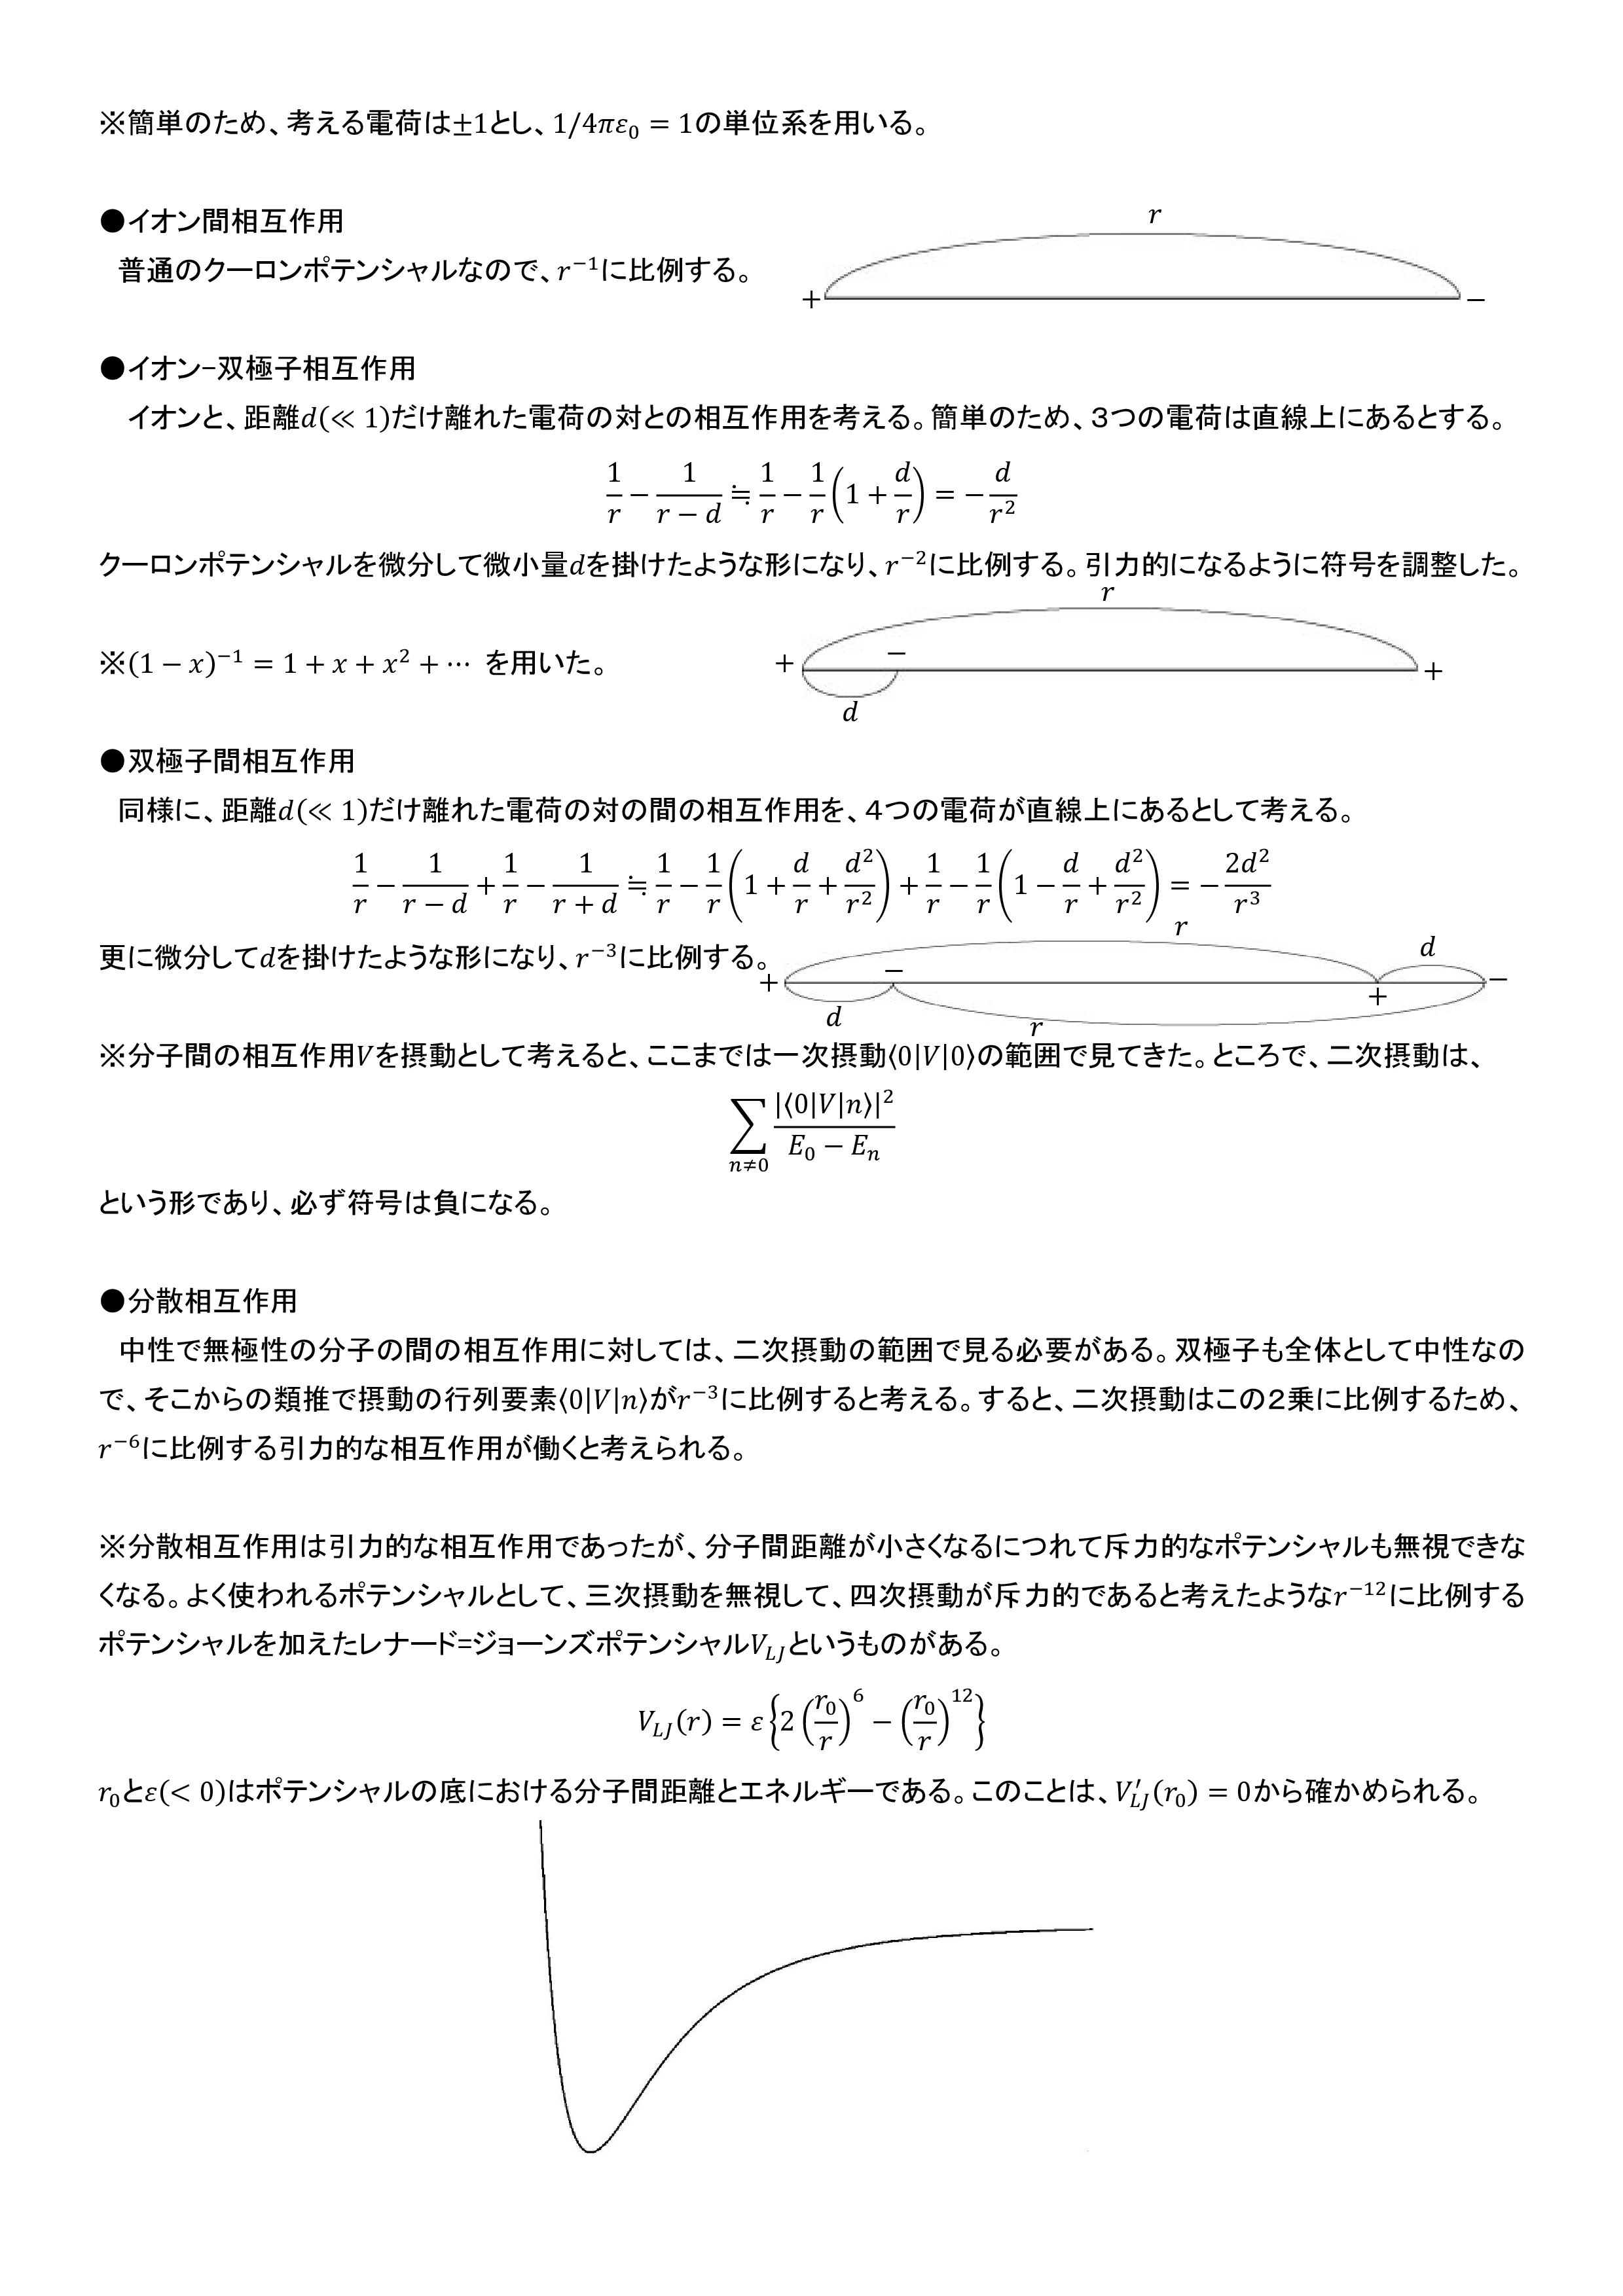 ※簡単のため、考える電荷は±1とし、1/4πε₀ = 1の単位系を用いる。
●イオン間相互作用
r
普通のクーロンポテンシャルなので、r⁻¹に比例する。
+ −
●イオン−双極子相互作用
イオンと、距離d(≪ 1)だけ離れた電荷の対との相互作用を考える。簡単のため、3つの電荷は直線上にあるとする。
1/r − 1/(r − d) ≒ 1/r − 1/r (1 + d/r) = − d/r²
クーロンポテンシャルを微分して微小量dを掛けたような形になり、r⁻²に比例する。引力的になるように符号を調整した。
r
※(1 − x)⁻¹ = 1 + x + x² + ⋯ を用いた。
+ − +
d
●双極子間相互作用
同様に、距離d(≪ 1)だけ離れた電荷の対の間の相互作用を、4つの電荷が直線上にあるとして考える。
1/r − 1/(r − d) + 1/r − 1/(r + d) ≒ 1/r − 1/r (1 + d/r + d²/r²) + 1/r − 1/r (1 − d/r + d²/r²) = − 2d²/r³
r
更に微分してdを掛けたような形になり、r⁻³に比例する。
d
+ − + −
d r
※分子間の相互作用Vを摂動として考えると、ここまでは一次摂動⟨0|V|0⟩の範囲で見てきた。ところで、二次摂動は、
∑n≠0 |⟨0|V|n⟩|² / (E₀ − Eₙ)
という形であり、必ず符号は負になる。
●分散相互作用
中性で無極性の分子の間の相互作用に対しては、二次摂動の範囲で見る必要がある。双極子も全体として中性なの
で、そこからの類推で摂動の行列要素⟨0|V|n⟩がr⁻³に比例すると考える。すると、二次摂動はこの2乗に比例するため、
r⁻⁶に比例する引力的な相互作用が働くと考えられる。
※分散相互作用は引力的な相互作用であったが、分子間距離が小さくなるにつれて斥力的なポテンシャルも無視できな
くなる。よく使われるポテンシャルとして、三次摂動を無視して、四次摂動が斥力的であると考えたようなr⁻¹²に比例する
ポテンシャルを加えたレナード=ジョーンズポテンシャルV_LJというものがある。
V_LJ(r) = ε{2(r₀/r)⁶ − (r₀/r)¹²}
r₀とε(< 0)はポテンシャルの底における分子間距離とエネルギーである。このことは、V′_LJ(r₀) = 0から確かめられる。